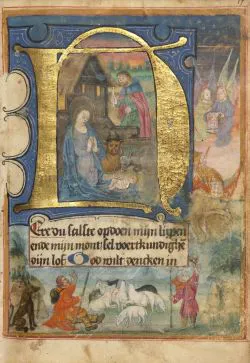 HEre du salste opdoen mijn lippen
ende mijn mont sel voertkundighe
dijn lof God wilt dencken in